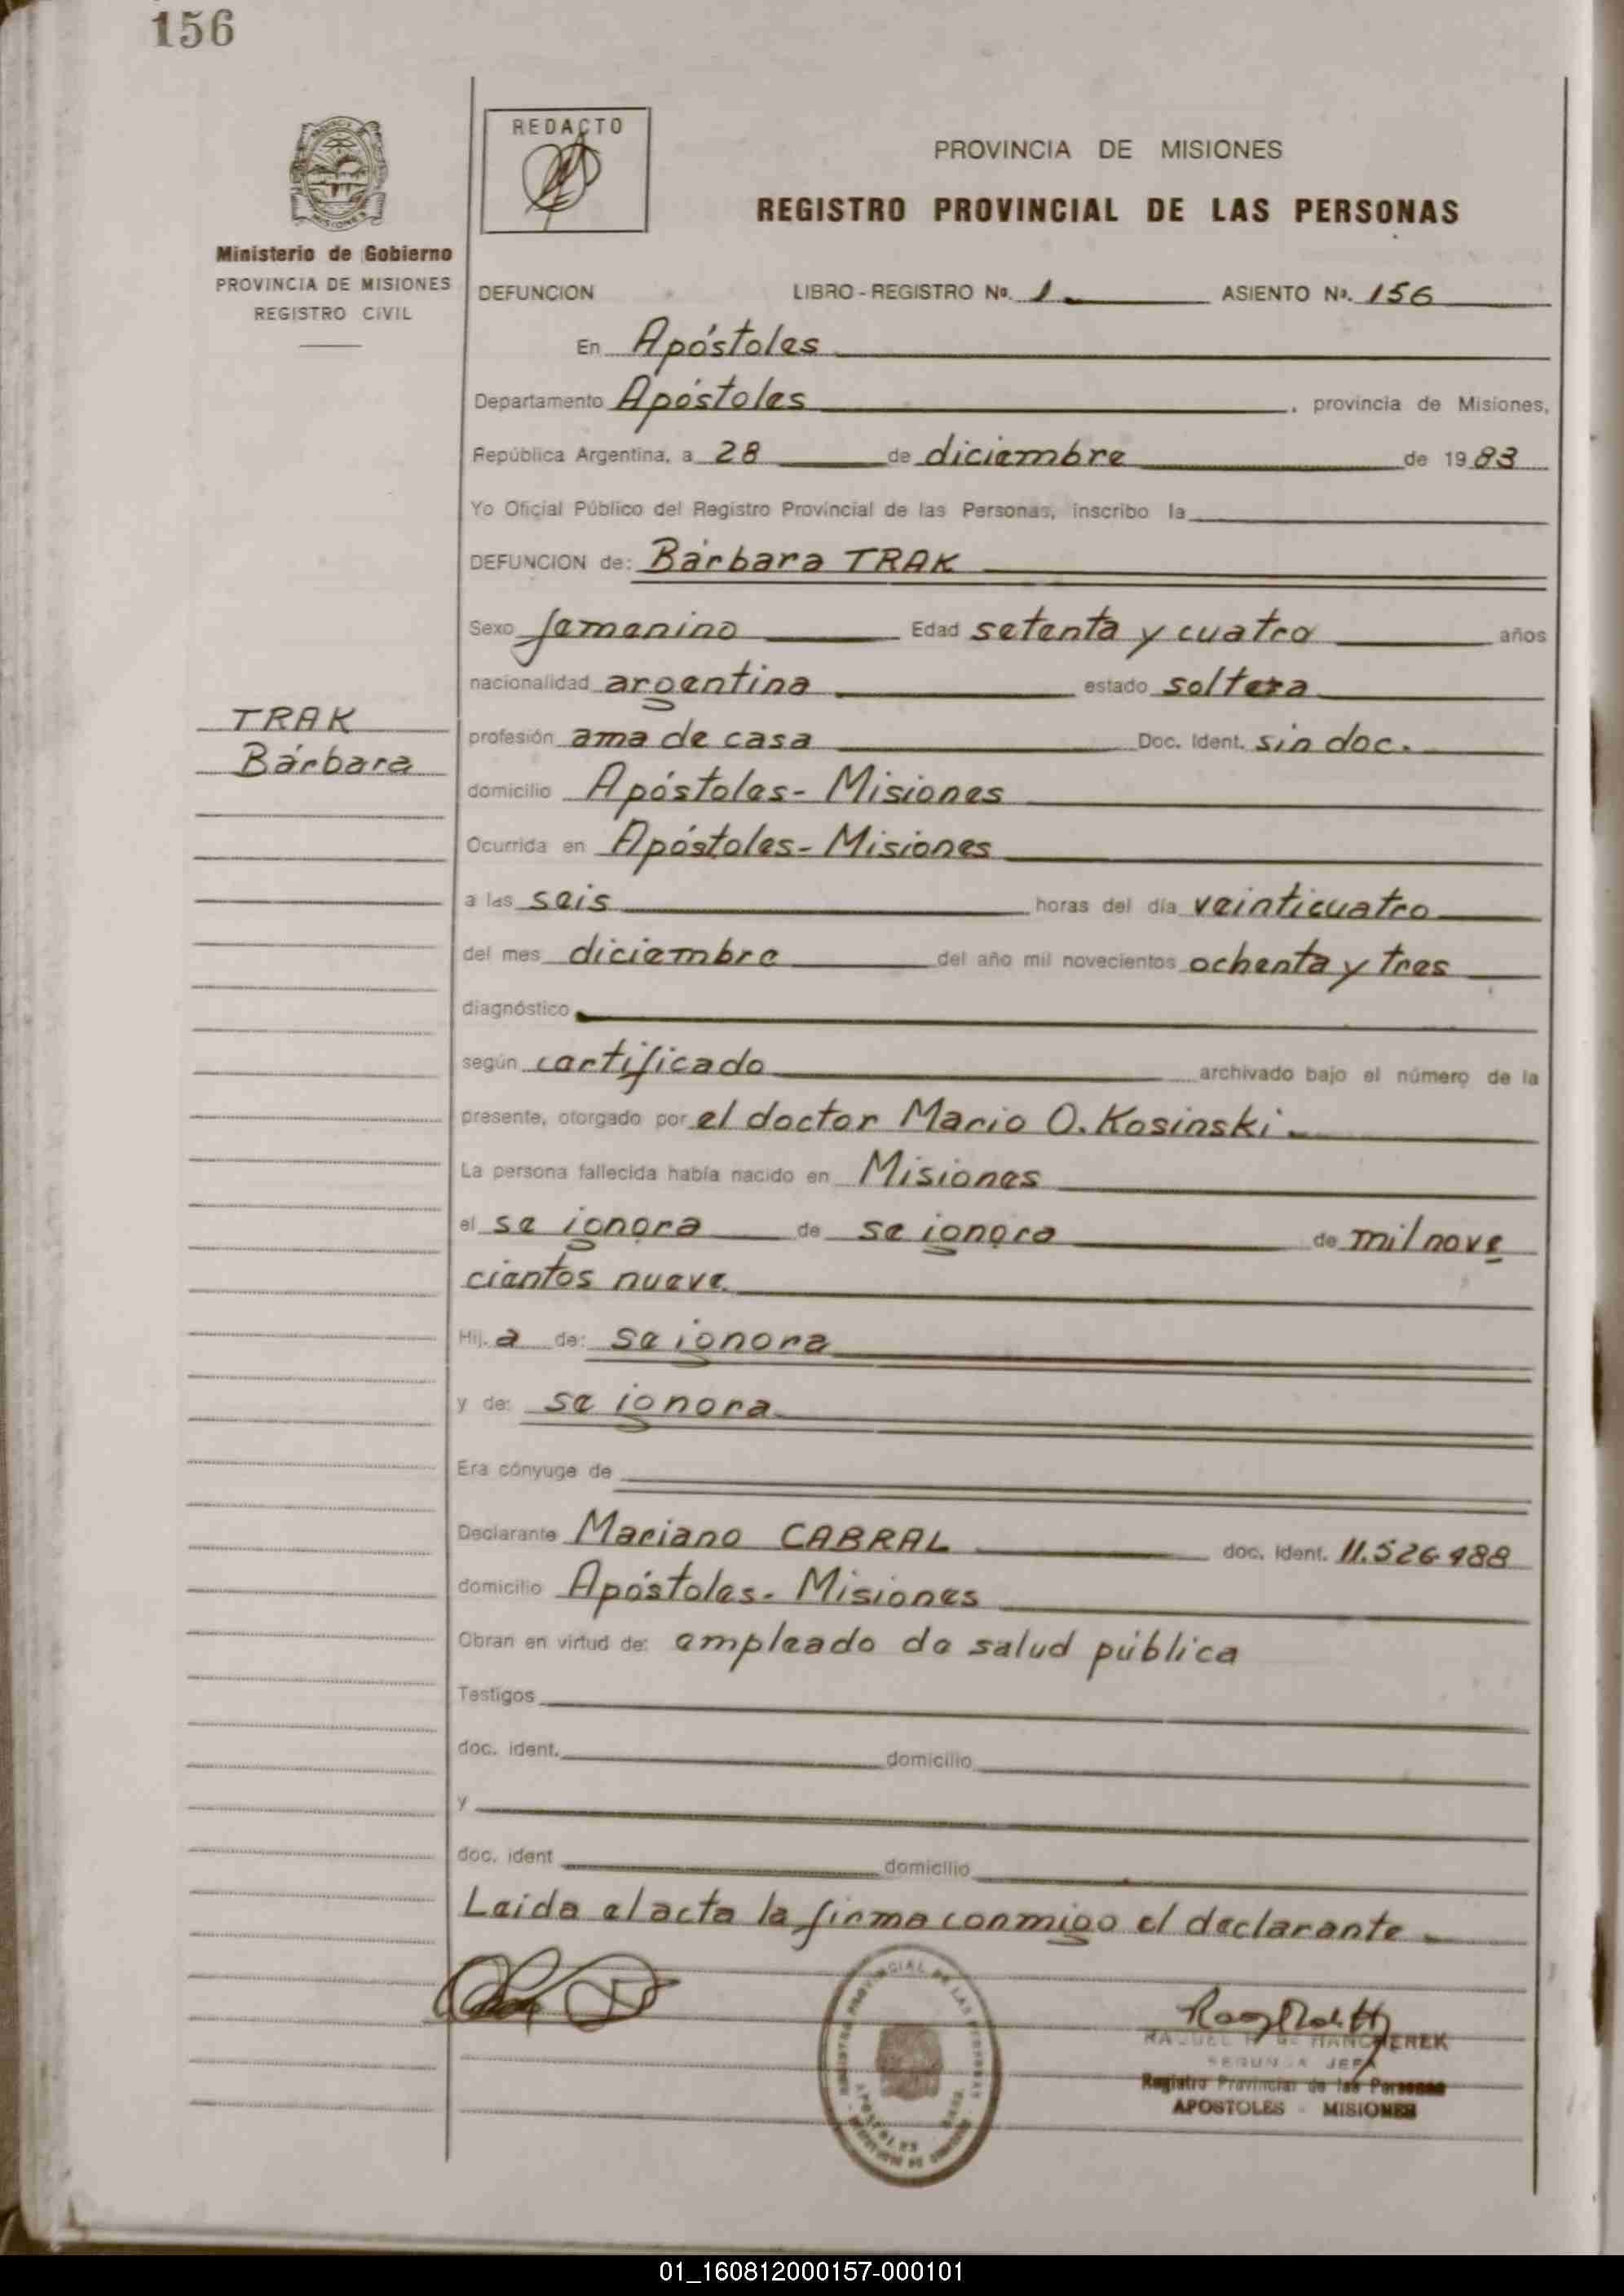 156
REDACTO
PROVINCIA DE MISIONES
REGISTRO PROVINCIAL DE LAS PERSONAS
Ministerio de Gobierno
PROVINCIA DE MISIONES
REGISTRO CIVIL
DEFUNCION LIBRO-REGISTRO Nº. 1 ASIENTO Nº. 156
En Apóstoles
Departamento Apóstoles, provincia de Misiones,
República Argentina, a 28 de diciembre de 1983
Yo Oficial Público del Registro Provincial de las Personas, inscribo la
DEFUNCION de: Bárbara TRAK
Sexo femenino Edad setenta y cuatro años
nacionalidad argentina estado soltera
TRAK
Bárbara
profesión ama de casa Doc. Ident. sin doc.
domicilio Apóstoles - Misiones
Ocurrida en Apóstoles - Misiones
a las seis horas del día veinticuatro
del mes diciembre del año mil novecientos ochenta y tres
diagnóstico
según certificado archivado bajo el número de la
presente, otorgado por el doctor Mario O. Kosinski.
La persona fallecida había nacido en Misiones
el se ignora de se ignora de mil nove
cientos nueve
Hij. a de: se ignora
y de: se ignora
Era cónyuge de
Declarante Mariano CABRAL doc. ident. 11.526.988
domicilio Apóstoles - Misiones
Obran en virtud de: empleado de salud pública
Testigos
doc. ident. domicilio
y
doc. ident domicilio
Leida el acta la firma conmigo el declarante
RAQUEL DE HANCHEREK
SEGUNDA JEFA
Registro Provincial de las Personas
APOSTOLES - MISIONES
01_160812000157-000101